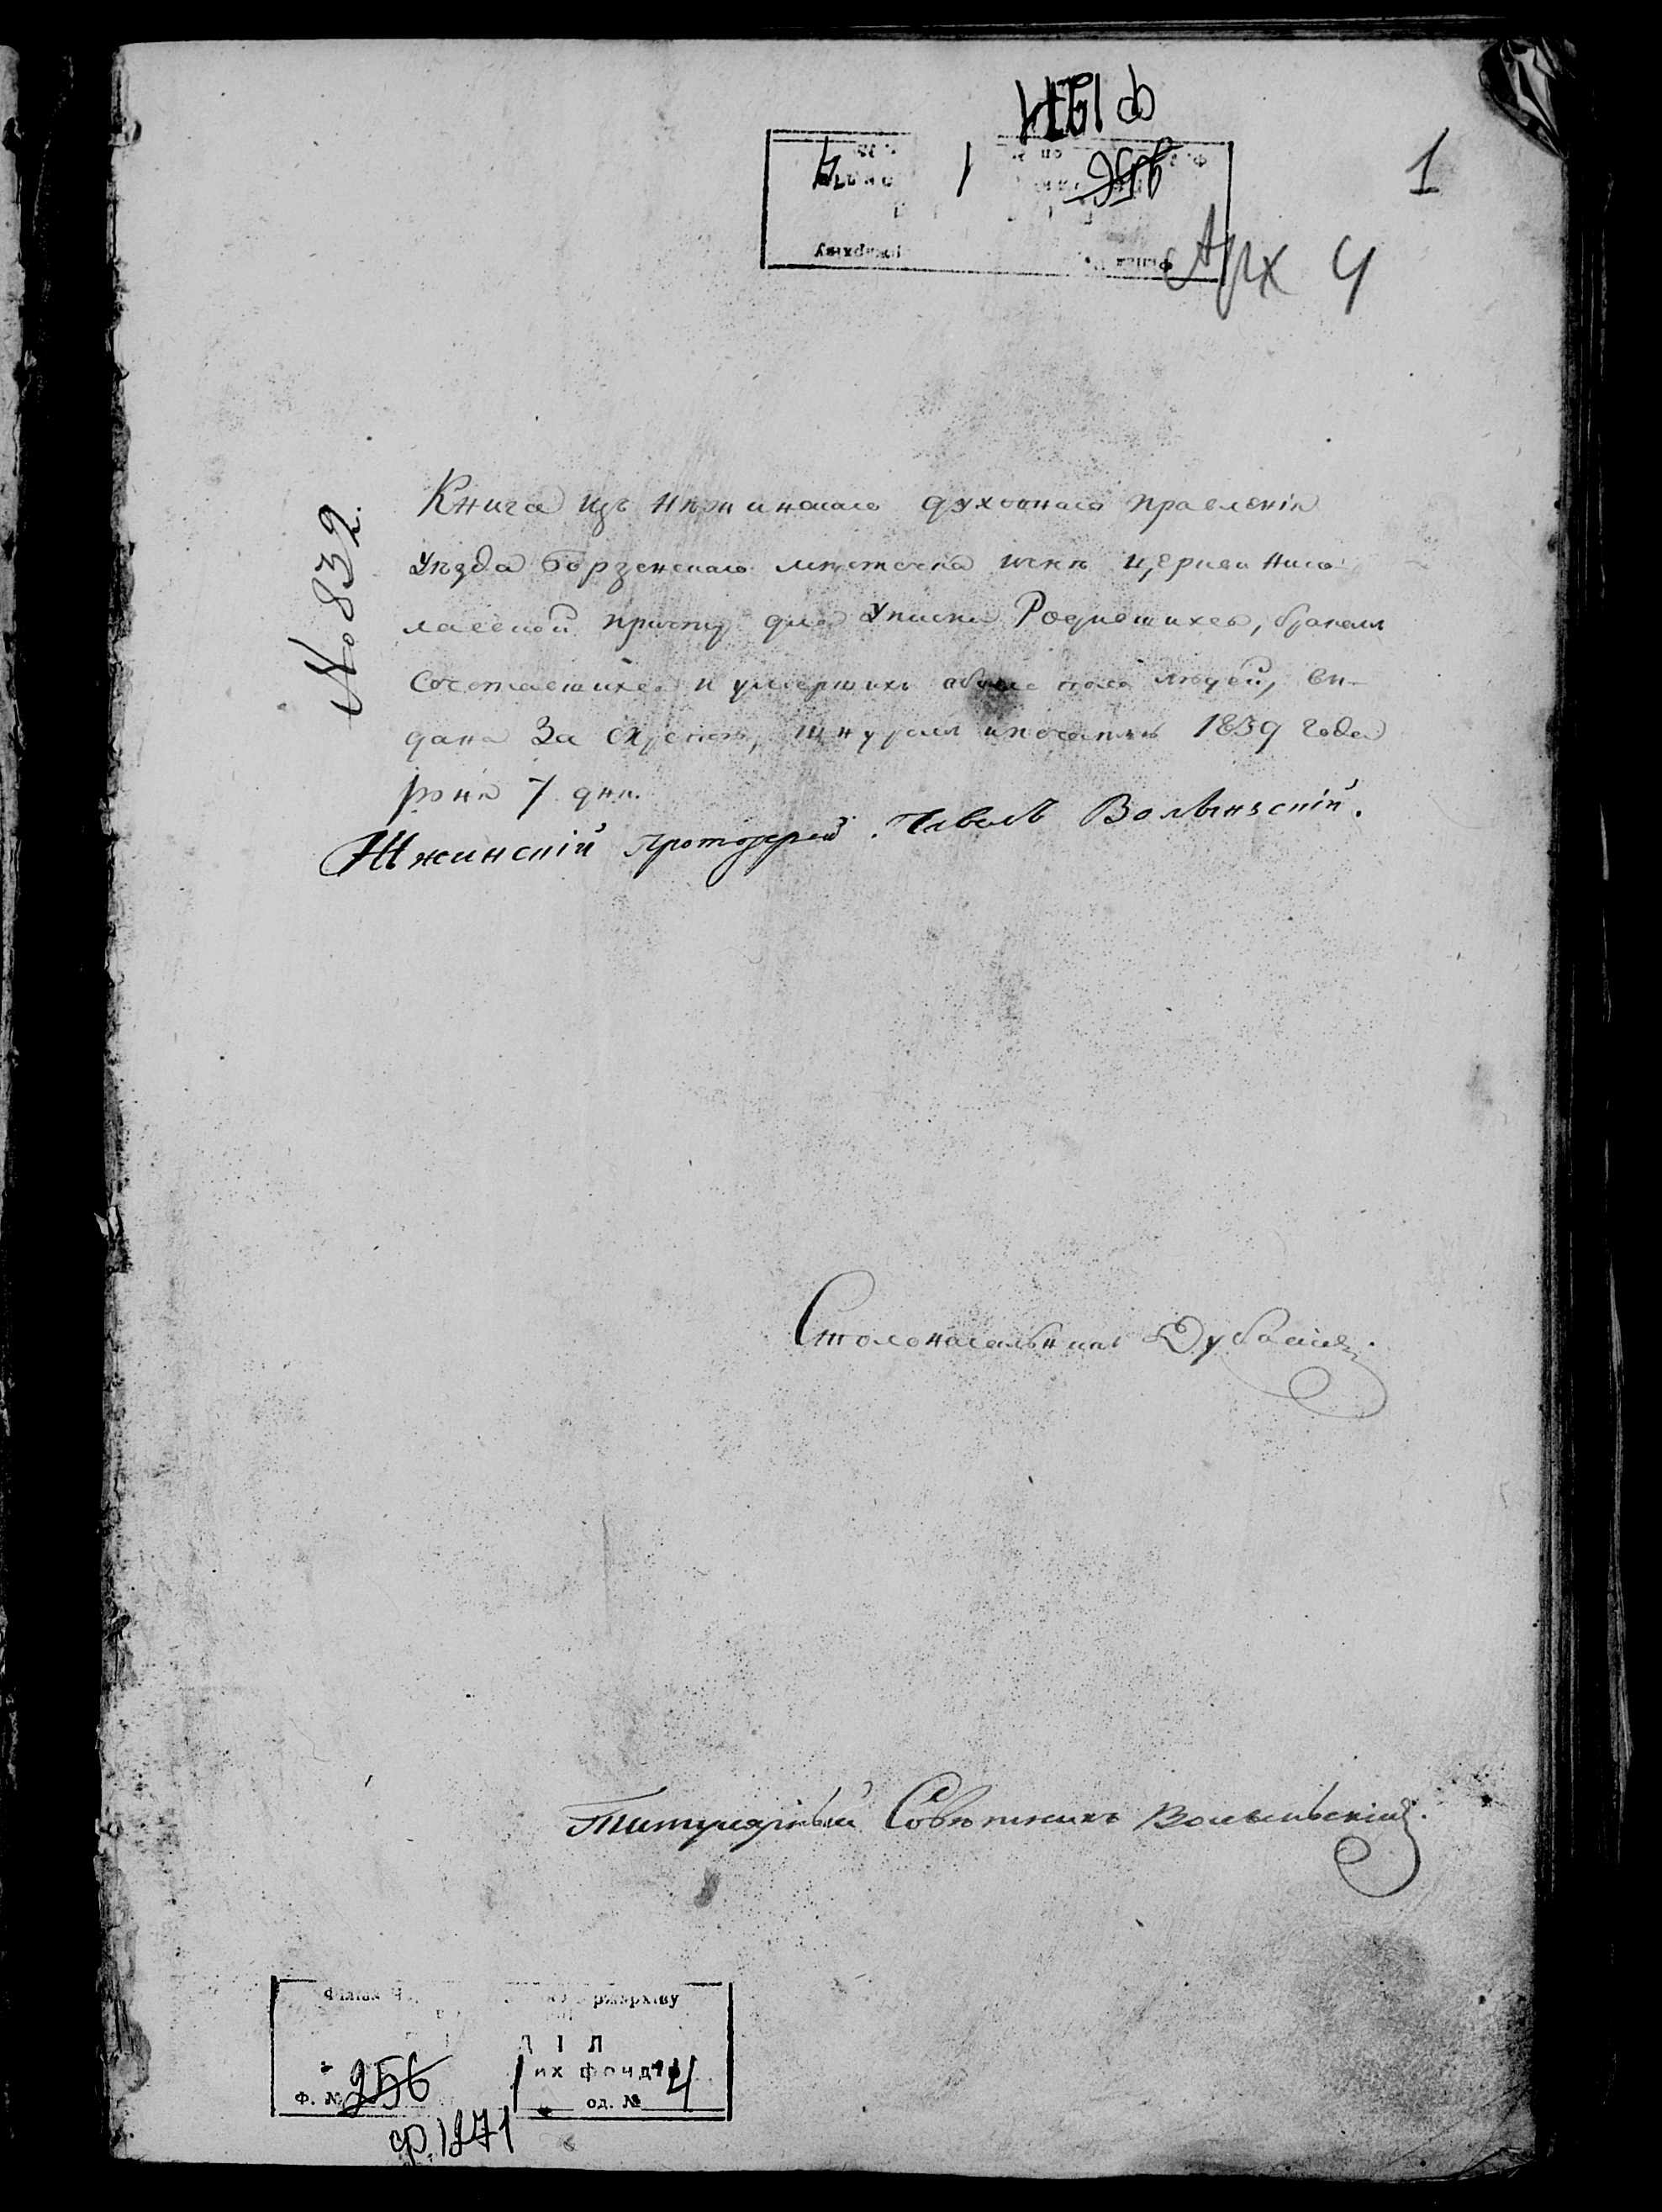 ф 1271
256
1
4
1
Арх 4
№ 832.
Книга изъ Нѣжинскаго духовнаго правленія
уѣзда Борзенскаго мѣстечка Ични церкви Нико
лаевской причту для Уписки Родившихся, бракомъ
Сочетавшихся и умершихъ обоего пола людей, вы-
дана За скрепою, шнуромъ и печатью 1839 Года
Іюня 7 дня.
Нѣжинскій протоіерей Павелъ Волынскій.
Столоначальникъ
Титулярный Совѣтникъ Волынскій.
Філіал держархіву
ДІЛ
их фондів
Ф. № 256 1 од. № 4
ф. 1271